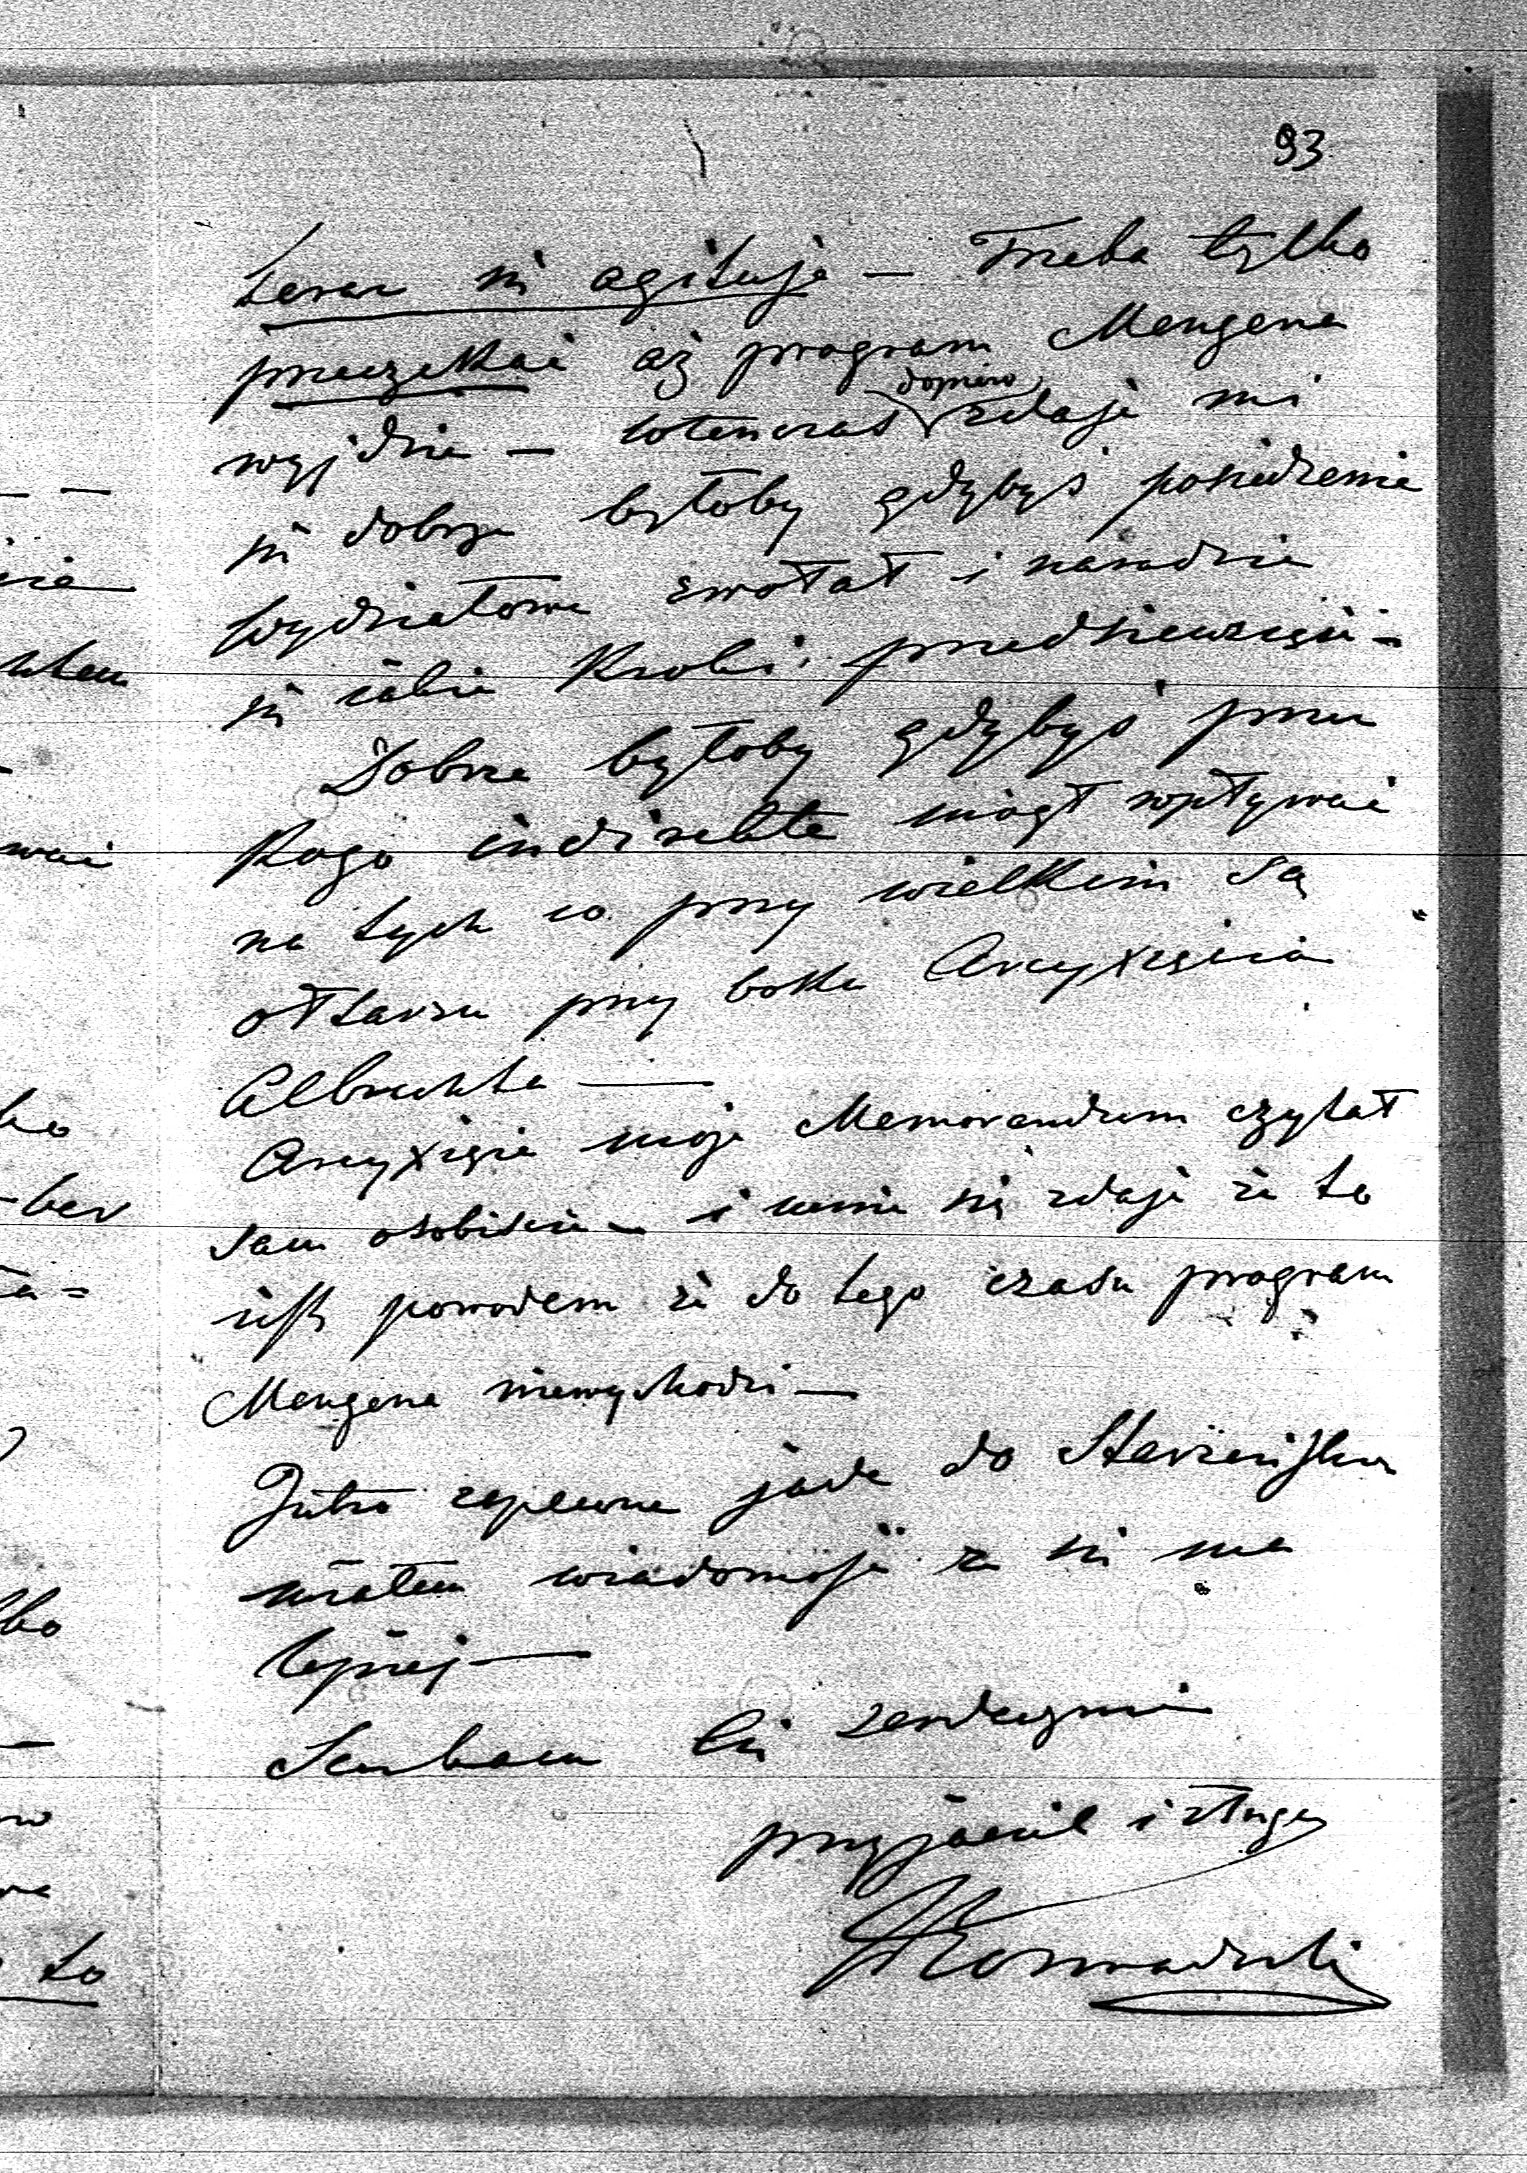 93
teraz się agituje — Trzeba tylko
przeczekać aż program Mengena
wyjdzie — wtenczas dopiero zdaje mi
się dobrze byłoby gdybyś posiedzenie
wydziałowe zwołał i naradzie
się jakie kroki przedsiewzięść -
Dobrze byłoby gdybyś przez
kogo indirekte mógł wpływać
na tych co przy wielkim są
ołtarzu przy boku Arcyxięcia
Albrechta —
Arcyxięże moje Memorandum czytał
sam osobiście — i mnie się zdaje że to
jest powodem że do tego czasu program
Mengena niewychodzi —
Jutro zapewne jadę do
miałem wiadomość że się ma
lepiej —
Ściskam Cię serdecznie
przyjaciel i sługa